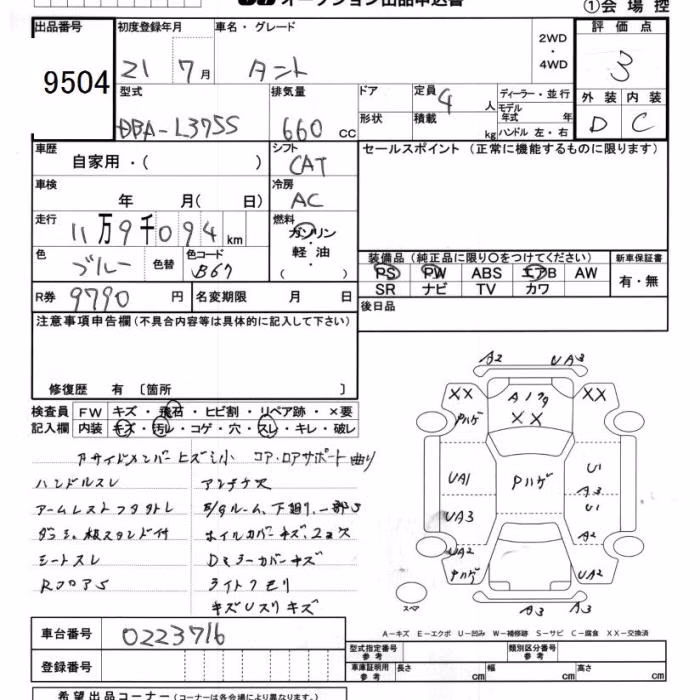 オークション出品申込書
①会場控
出品番号 初度登録年月 車名・グレード 2WD・4WD 評価点
9504 21 7月 タント 3
型式 排気量 ドア 定員 4人 ディーラー・並行
モデル年式 年
外装 内装
DBA-L375S 660cc 形状 積載 kg ハンドル 左・右 D C
車歴 自家用・( ) シフト CAT セールスポイント (正常に機能するものに限ります)
車検 年 月( 日) 冷房 AC
走行 11万9千094km 燃料 ガソリン
軽・油
( )
色 ブルー 色替 色コード B67
装備品 (純正品に限り○をつけてください) 新車保証書
PS PW ABS エアB AW 有・無
SR ナビ TV カワ
R券 9790円 名変期限 月 日 後日品
注意事項申告欄 (不具合内容等は具体的に記入して下さい)
修復歴 有 〔箇所 〕
検査員 FW キズ・飛石・ヒビ割・リペア跡・×要
記入欄 内装 キズ・汚レ・コゲ・穴・スレ・キレ・破レ
コア・ロアサポート曲り
ハンドルスレ アンテナ欠
シートスレ
ライトクモリ
A2 UA3
XX A179 XX
XX
Pハゲ
UA1 Pハゲ U1
A3
UA3 U1
A2
UA2
Pハゲ UA2
スペア A3 A3
A-キズ E-エクボ U-凹み W-補修跡 S-サビ C-腐食 XX-交換済
車台番号 0223716
型式指定番号 参考 類別区分番号 参考
登録番号 車庫証明用 参考 長さ cm 幅 cm 高さ cm
希望出品コーナー (コーナーは各会場により異なります。)